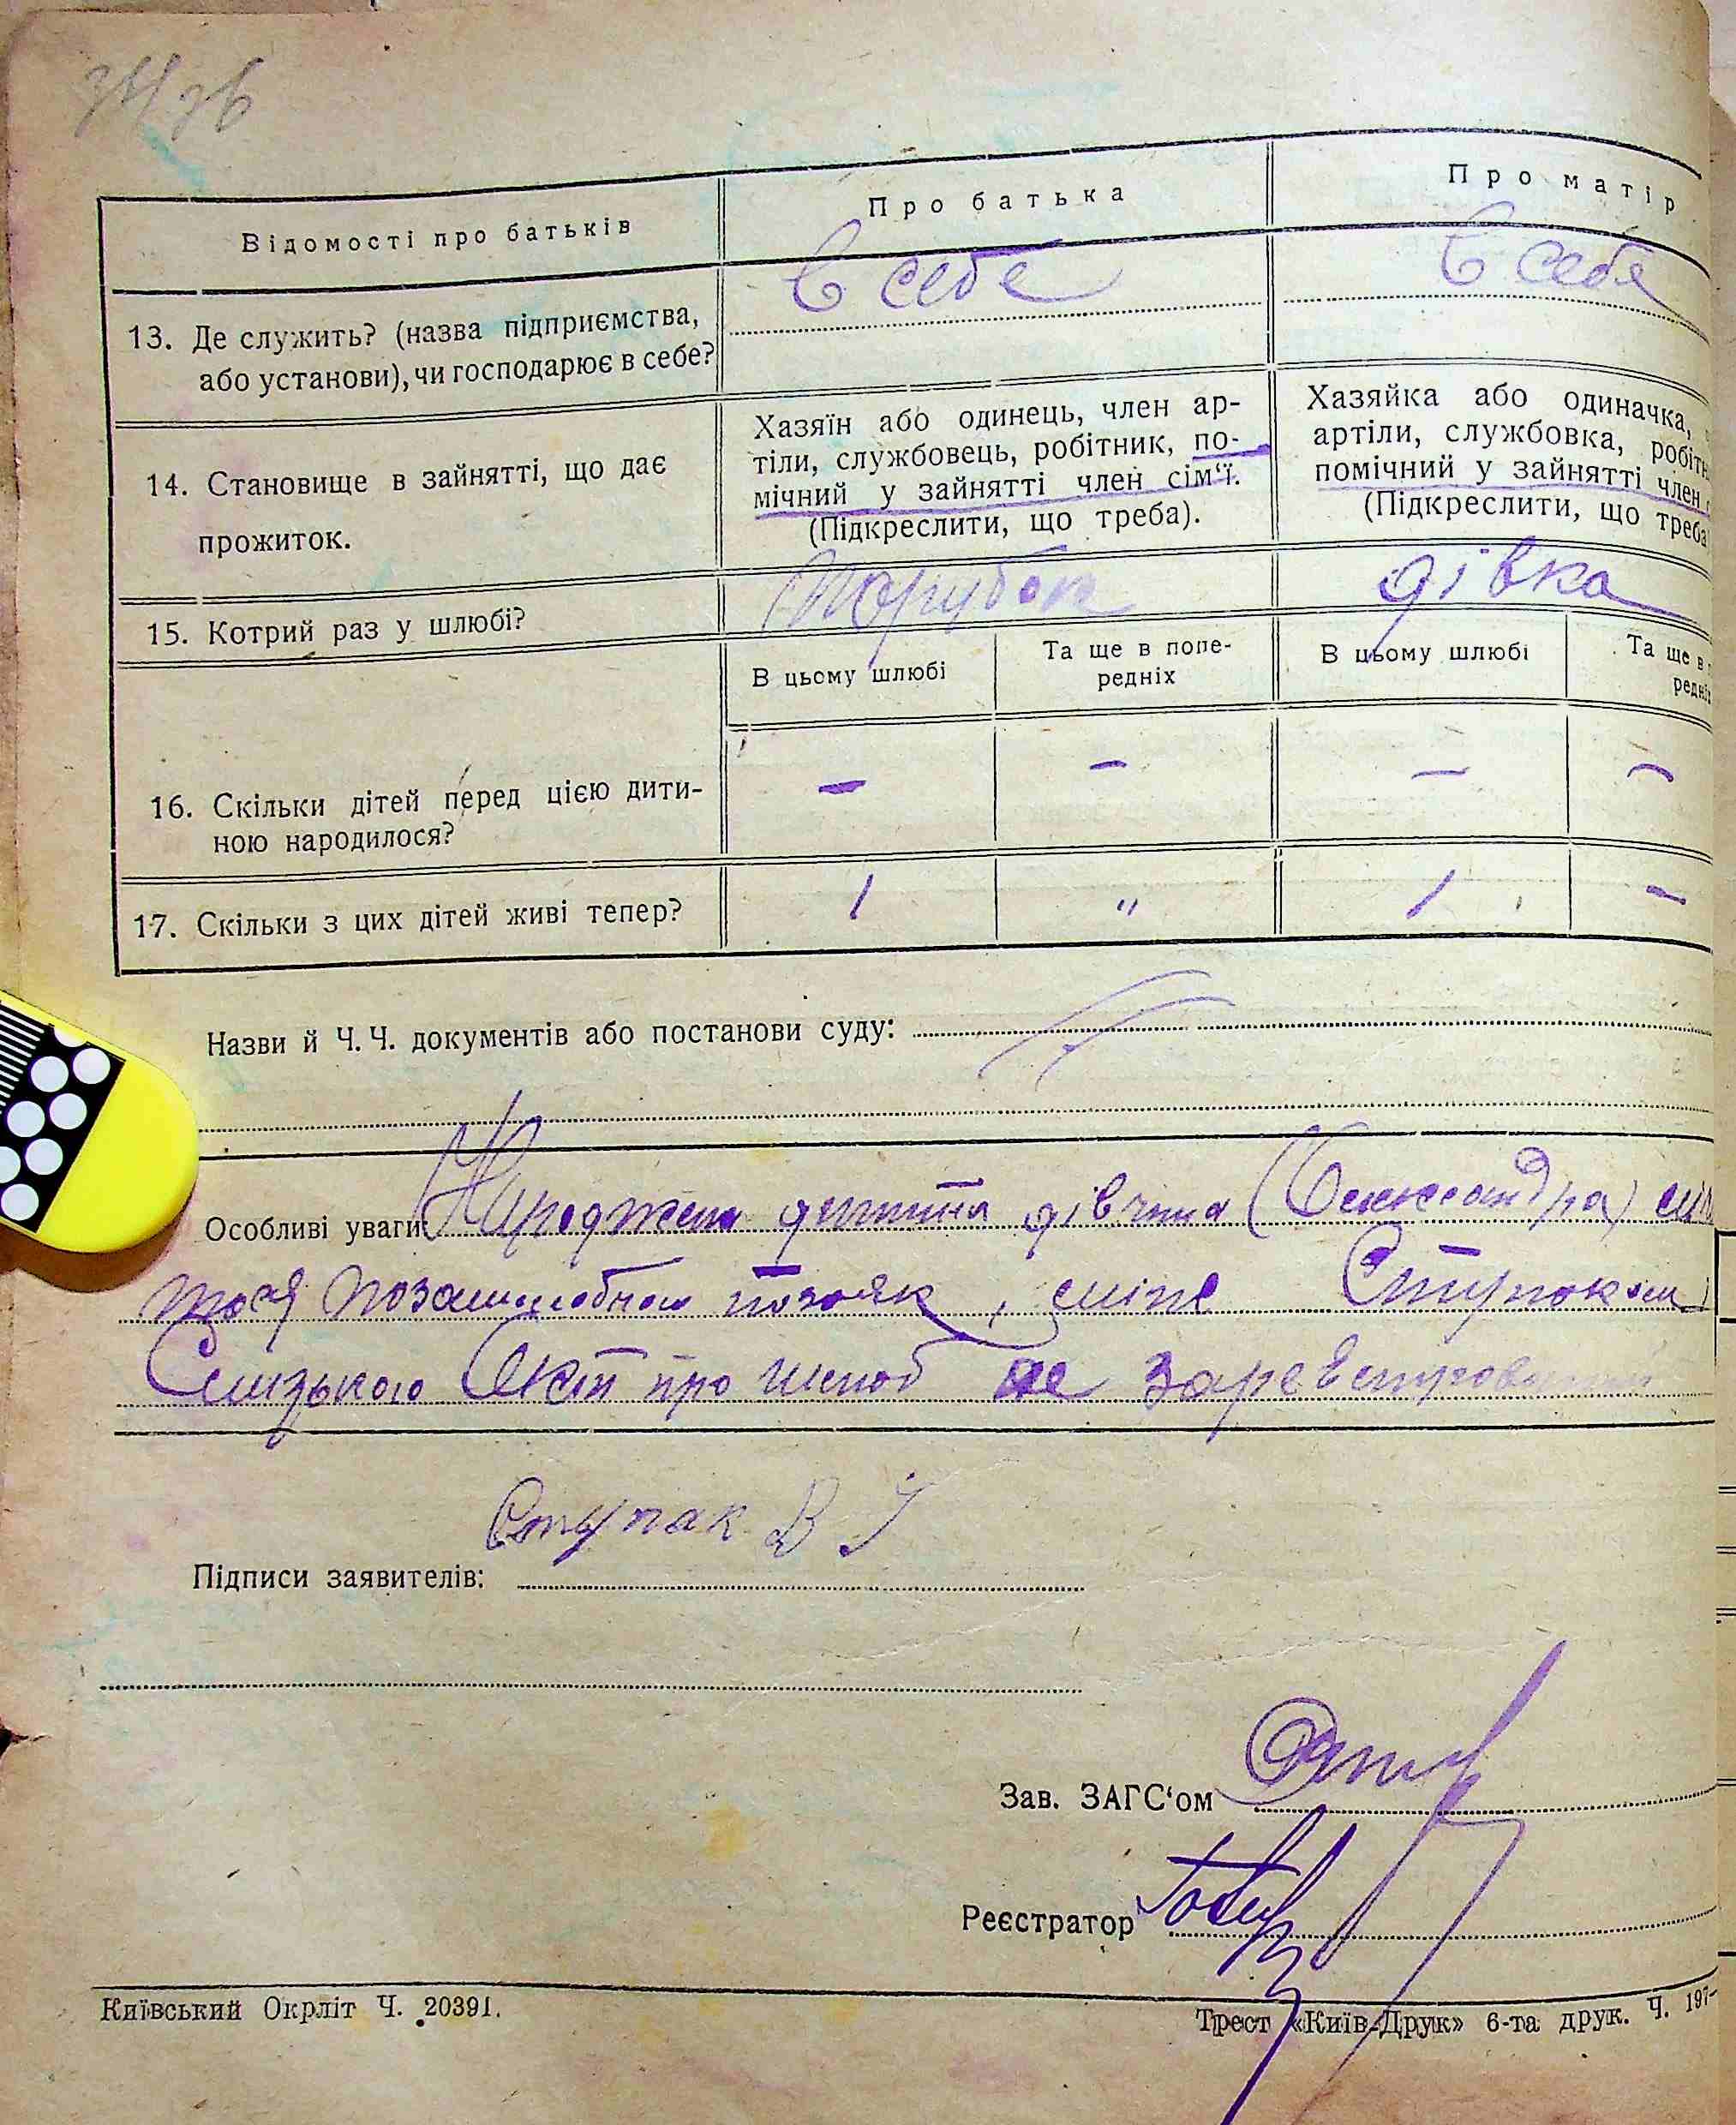 Відомості про батьків
Про батька
Про матір
13. Де служить? (назва підприємства,
або установи), чи господарює в себе?
в себе
в себе
14. Становище в зайнятті, що дає
прожиток.
Хазяїн або одинець, член ар-
тіли, службовець, робітник, по-
мічний у зайнятті член сім‘ї.
(Підкреслити, що треба).
Хазяйка або одиначка,
артіли, службовка, робітн
помічний у зайнятті член
(Підкреслити, що треба
15. Котрий раз у шлюбі?
Парубок
дівка
В цьому шлюбі
Та ще в попе-
редніх
В цьому шлюбі
Та ще в
редніх
16. Скільки дітей перед цією дити-
ною народилося?
—
—
—
—
17. Скільки з цих дітей живі тепер?
1
"
1
—
Назви й Ч. Ч. документів або постанови суду:
Особливі уваги: Народжена дитина дівчина (Олександра)
позашлюбною позаяк, між Ступаком і
Слизькою Акт про шлюб не зареєстровано
Ступак В І
Підписи заявителів:
Зав. ЗАГС‘ом
Реєстратор
Київський Окрліт Ч. 20391.
Трест «Київ-Друк» 6-та друк. Ч. 197-